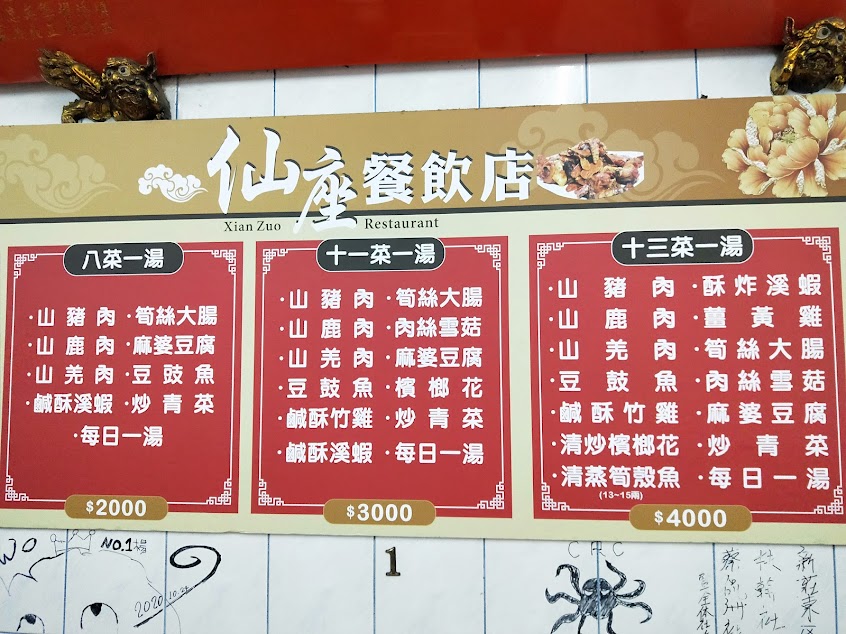 仙座餐飲店
Xian Zuo Restaurant
八菜一湯
·山豬肉 ·筍絲大腸
·山鹿肉 ·麻婆豆腐
·山羌肉 ·豆豉魚
·鹹酥溪蝦 ·炒青菜
·每日一湯
$2000
十一菜一湯
·山豬肉 ·筍絲大腸
·山鹿肉 ·肉絲雪菇
·山羌肉 ·麻婆豆腐
·豆鼓魚 ·檳榔花
·鹹酥竹雞 ·炒青菜
·鹹酥溪蝦 ·每日一湯
$3000
十三菜一湯
·山豬肉 ·酥炸溪蝦
·山鹿肉 ·薑黃雞
·山羌肉 ·筍絲大腸
·豆鼓魚 ·肉絲雪菇
·鹹酥竹雞 ·麻婆豆腐
·清炒檳榔花 ·炒青菜
·清蒸筍殼魚 ·每日一湯
(13~15兩)
$4000
NO.1 楊
2020.10.24
1
CRC